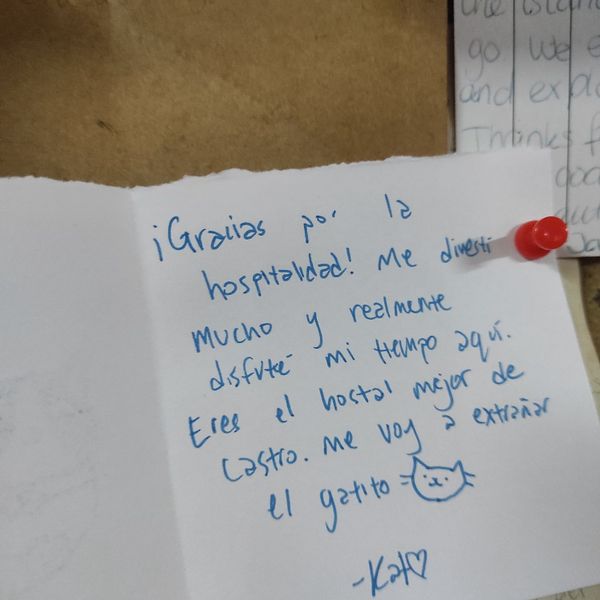 the island
go we
and expl
Thinks f
¡Gracias por la
hospitalidad! Me divesti
mucho y realmente
disfruté mi tiempo aquí.
Eres el hostal mejor de
Castro. Me voy a extrañar
el gatito
-Kat♡